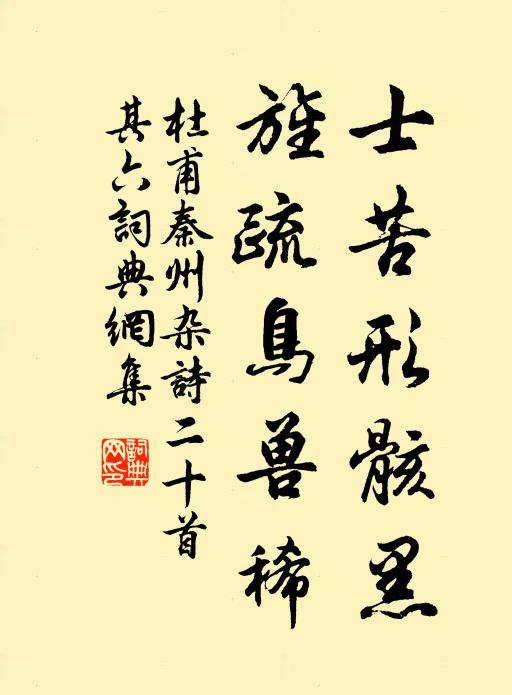 士苦形骸黑
旌疏鳥兽稀
杜甫秦州杂詩二十首
其六詞典網集
詞典
网印